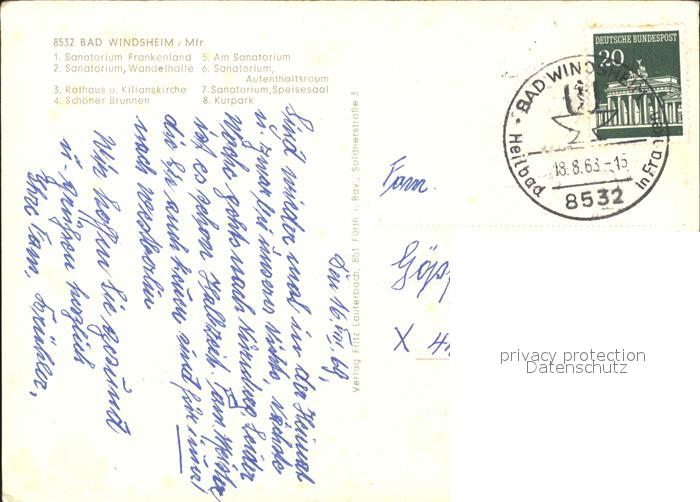 8532 BAD WINDSHEIM / Mfr.
1. Sanatorium Frankenland 5. Am Sanatorium
2. Sanatorium, Wandelhalle 6. Sanatorium, Aufenthaltsraum
3. Rathaus u. Kilianskirche 7. Sanatorium, Speisesaal
4. Schöner Brunnen 8. Kurpark
DEUTSCHE BUNDESPOST
20
BAD WINDSHEIM
18.8.63-15
Heilbad in Franken
8532
Verlag Fritz Lauterbach, 851 Fürth i. Bay., Soldnerstraße 3
Fam.
Göpp
X 4
privacy protection
Datenschutz
Den 16. 69,
Sind wieder mal in der Heimat
u. zwar bei unserer nächste
Woche gehts nach Nürnberg. Leider
ist es schon Halbzeit. Fam.
die Sie auch kennen sind für immer
nach
Wir hoffen Sie gesund
u. grüßen herzlich
Ihre Fam.